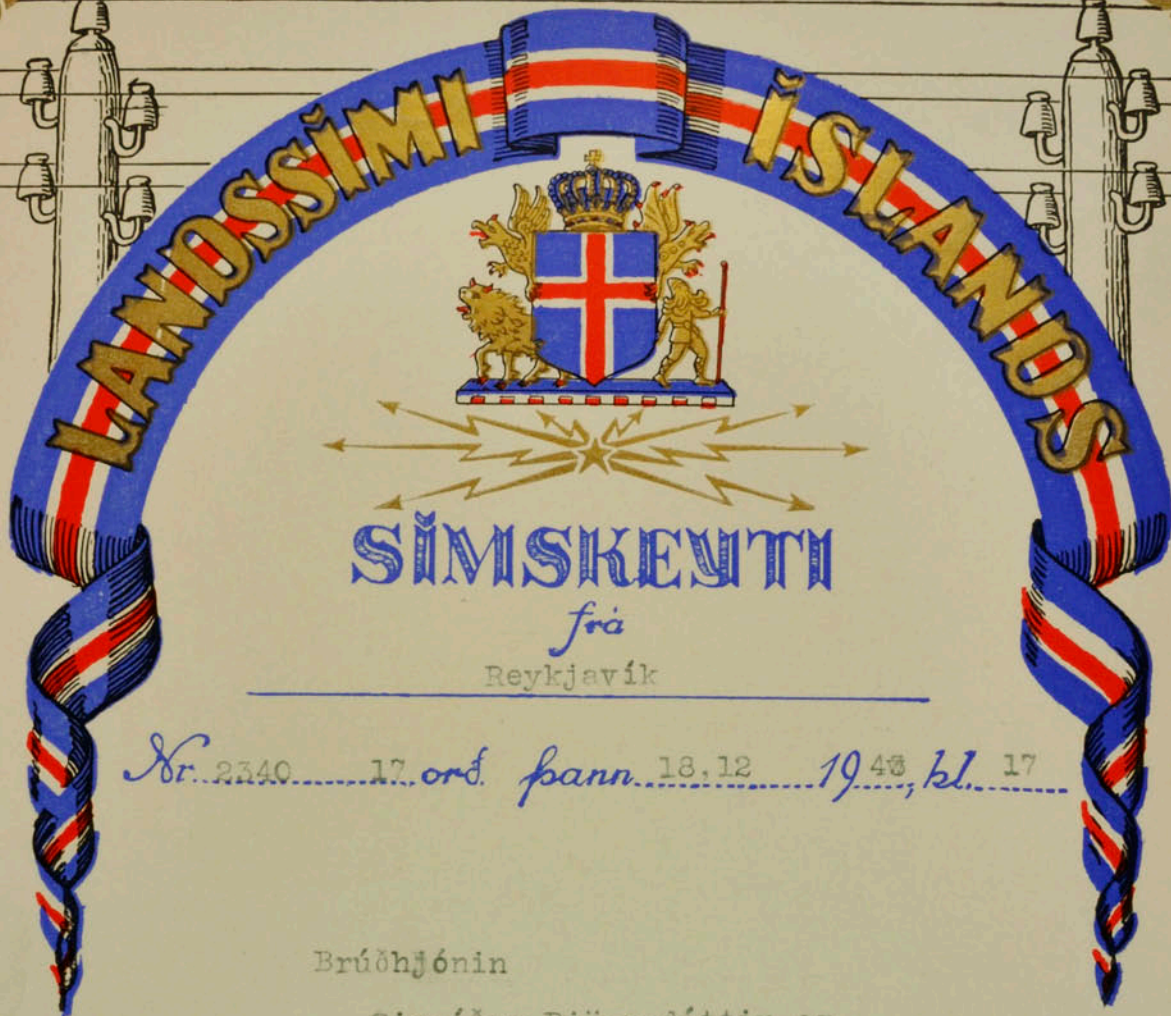 LANDSSÍMI ÍSLANDS
SÍMSKEYTI
frá
Reykjavík
Nr. 2340 17 orð. þann 18.12 19, kl. 17
Brúðhjónin